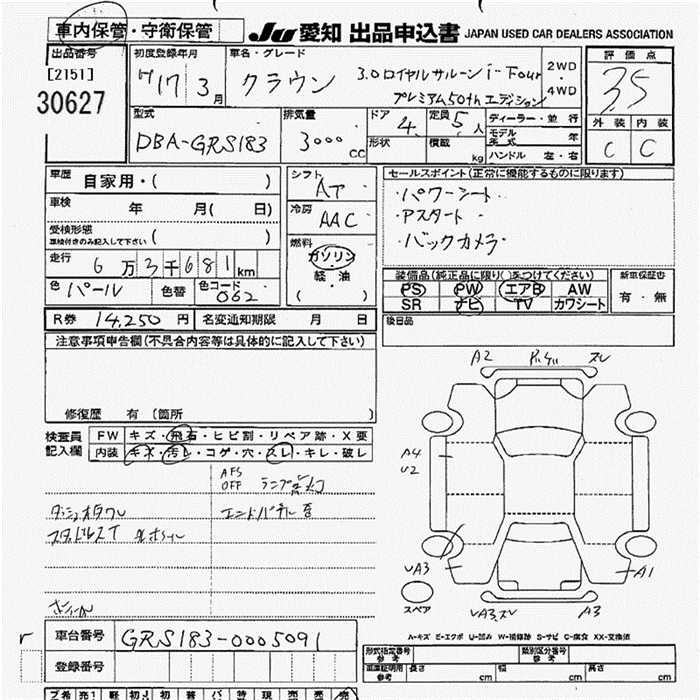 車内保管・守衛保管
JU 愛知 出品申込書 JAPAN USED CAR DEALERS ASSOCIATION
出品番号
[2151]
30627
初度登録年月
17 3 月
車名・グレード
クラウン 3.0ロイヤルサルーン i-Four
プレミアム50thエディション
2WD
4WD
評価点
3.5
外装 内装
C C
型式
DBA-GRS183
排気量
3000 CC
ドア
4
定員
5 人
形状
積載
kg
ディーラー・並行
モデル年式 年
ハンドル 左・右
車歴
自家用・( )
車検
年 月( 日)
受検形態
車検付きのみ記入して下さい ( )
走行
6万3千681 km
色 パール 色替 色コード 062
シフト AT
冷房 AAC
燃料
ガソリン
軽・油
( )
セールスポイント(正常に機能するものに限ります)
・パワーシート
・アスタート
・バックカメラ
装備品(純正品に限り○をつけてください)
PS PW エアB AW
SR ナビ TV カワシート
新車保証書
有・無
R券 14,250 円 名変通知期限 月 日
後日品
注意事項申告欄(不具合内容等は具体的に記入して下さい)
修復歴 有(箇所 )
検査員
記入欄
FW キズ・飛石・ヒビ割・リペア跡・X要
内装 キズ・汚レ・コゲ・穴・スレ・キレ・破レ
AFS
OFF
A2 スレ
A4
U2
UA3
A1
スペア
UA3.スレ
A3
A-キズ E-エクボ U-凹み W-補修跡 S-サビ C-腐食 XX-交換済
車台番号 GRS183-0005091
登録番号
形式指定番号 参考
類別区分番号 参考
車庫証明用 参考 長さ cm 幅 cm 高さ cm